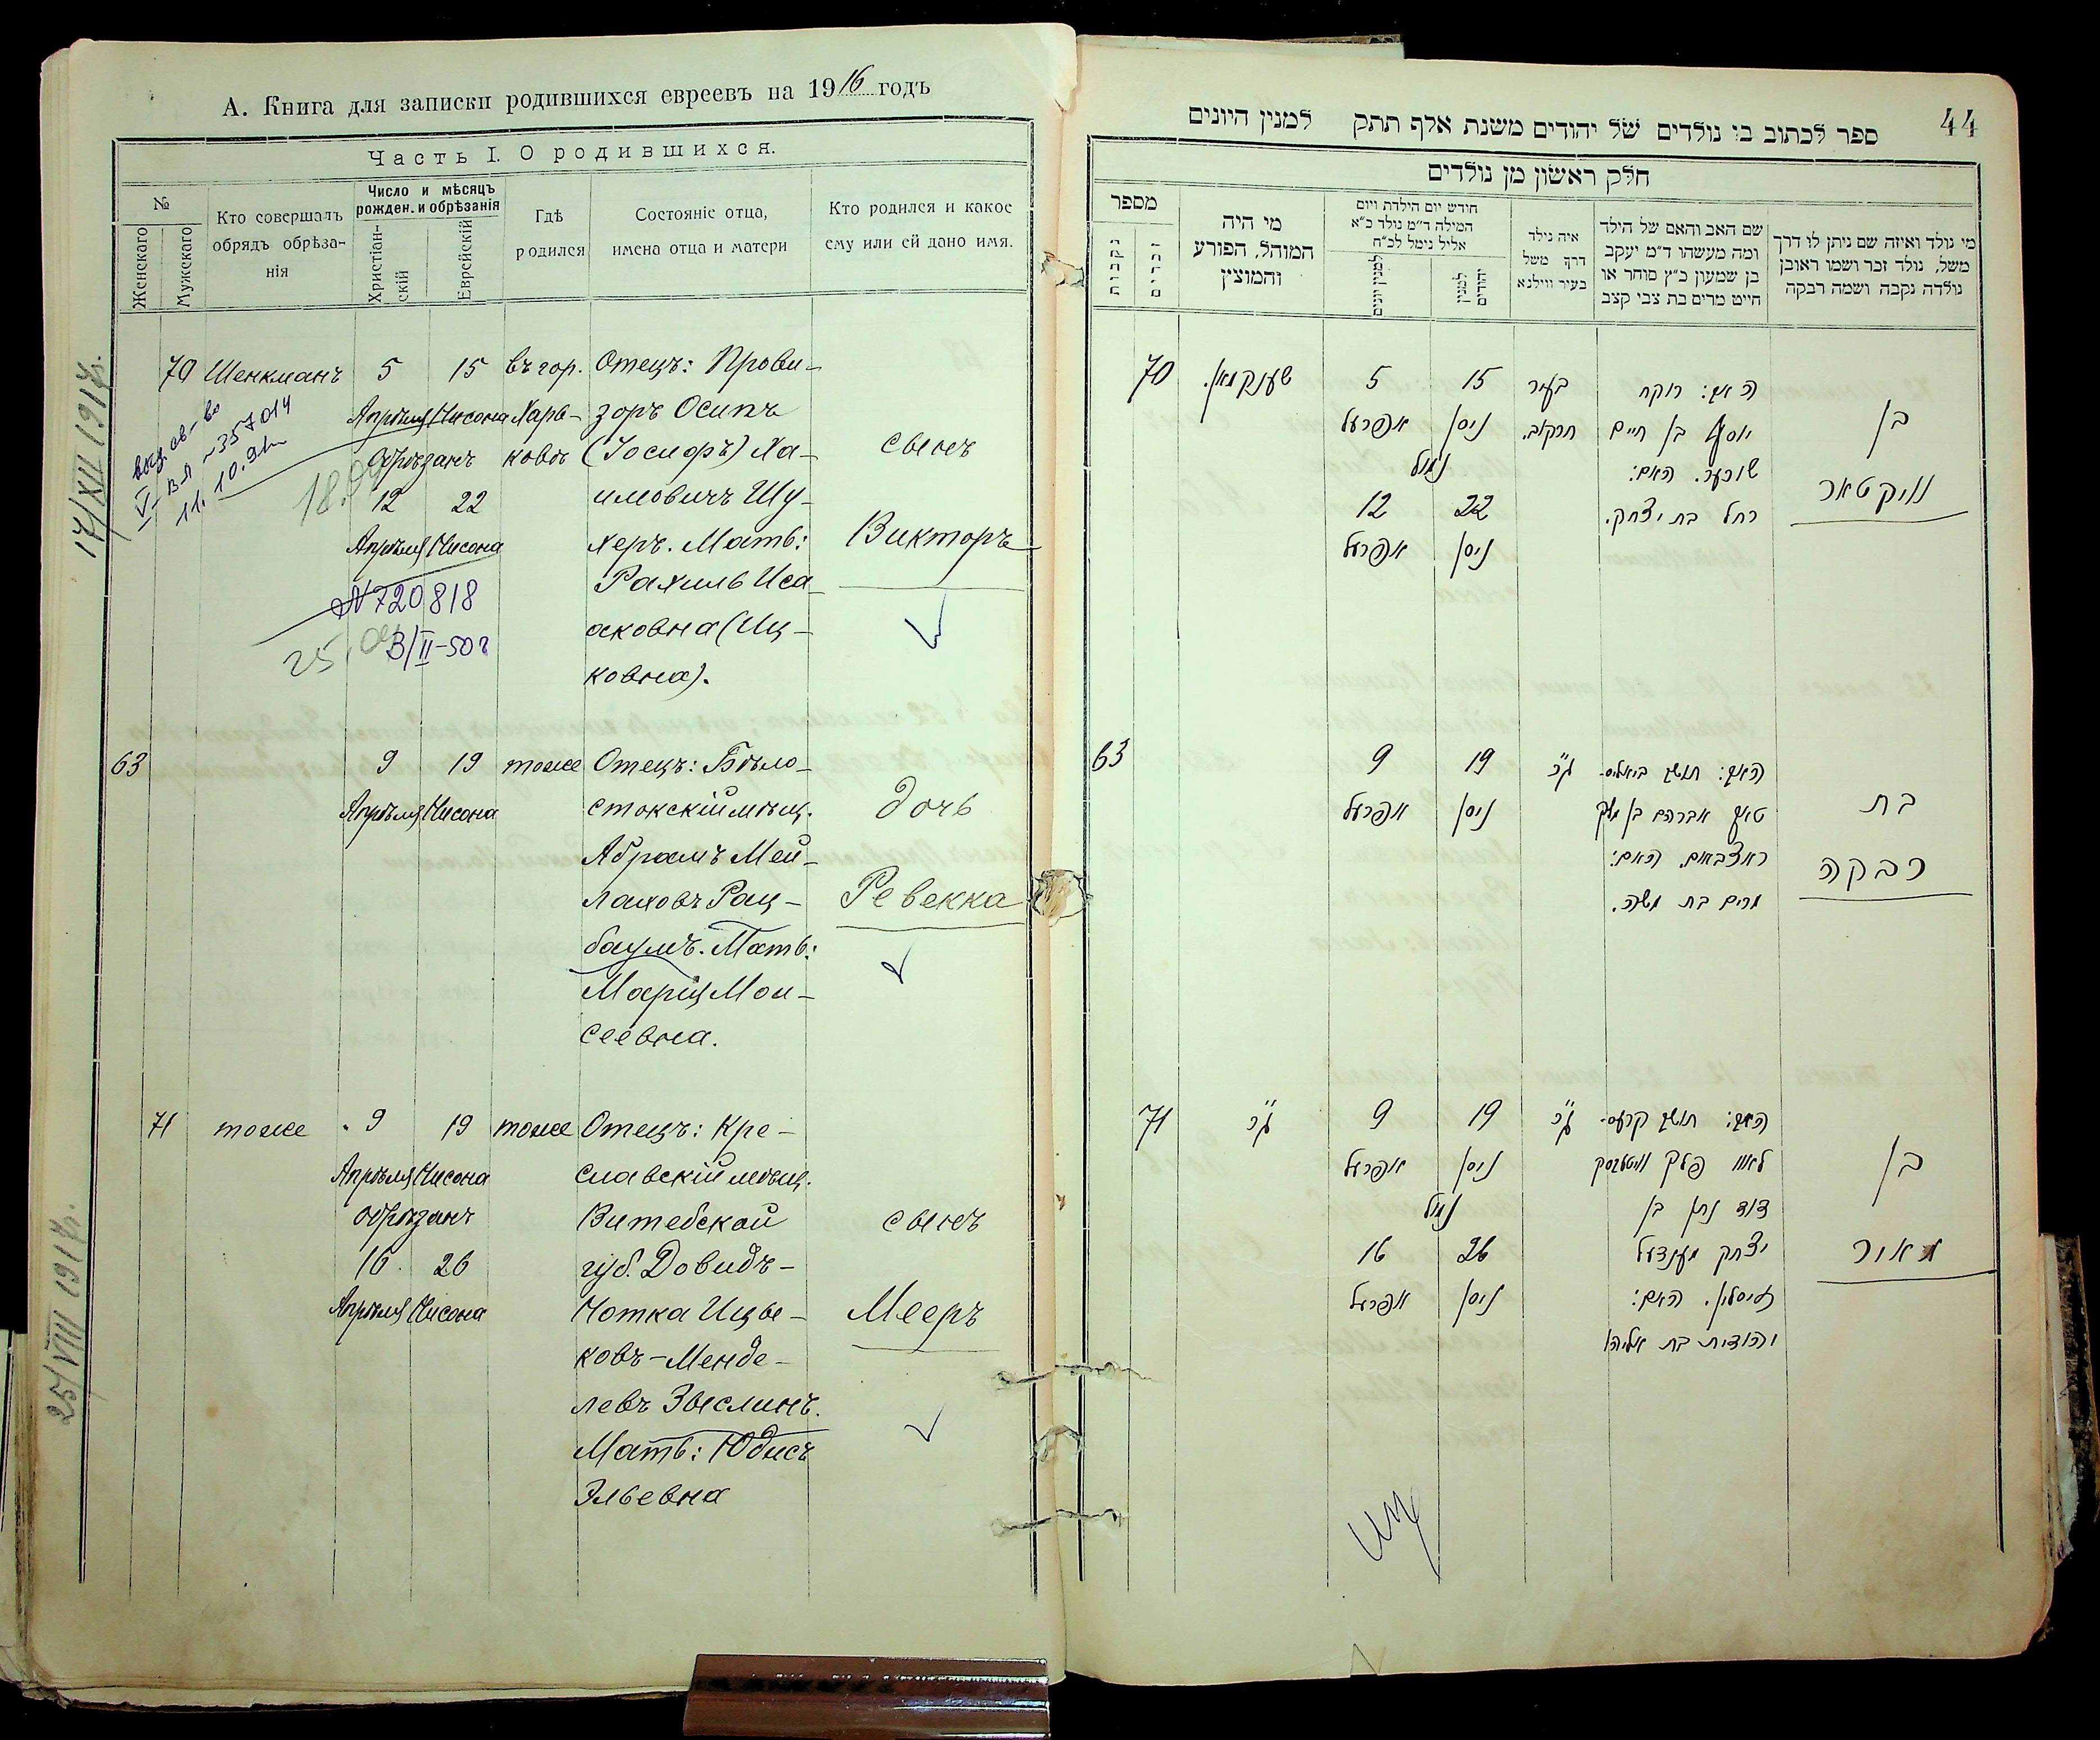 А. Книга для записки родившихся евреевъ на 1916 годъ
Часть I. О родившихся.
№
Женскаго
Мужскаго
Кто совершалъ
обрядъ обрѣза-
нія
Число и мѣсяцъ
рожден. и обрѣзанія
Христіан-
скій
Еврейскій
Гдѣ
родился
Состояніе отца,
имена отца и матери
Кто родился и какое
ему или ей дано имя.
70 Шенкманъ 5 15 въ гор. Отецъ: Прови-
Апрѣля Нисона Харь- зоръ Осипъ
обрѣзанъ ковѣ (Іосифъ) Ха- сынъ
12 22 имовичъ Шу-
Апрѣля Нисона херъ. Мать: Викторъ
Рахиль Иса
аковна (Иц-
ковна).
17/XII 1917г.
выд. св-во
V-ВЯ № 357014
11. 10. 91г
№720818
3/II-50г
63 9 19 тоже Отецъ: Бѣло-
Апрѣля Нисона стокскій мѣщ. дочь
Абрамъ Мей-
лаховъ Рац- Ревекка
баумъ. Мать:
Марія Мои-
сеевна.
71 тоже 9 19 тоже Отецъ: Кре-
Апрѣля Нисона славскій мѣщ.
обрѣзанъ Витебской сынъ
16 26 губ. Довидъ-
Апрѣля Нисона Нотка Ицы- Мееръ
ковъ-Менде-
левъ Зыслинъ.
Мать: Юдисъ
Эльевна
25/VIII 1917г.
44
ספר לכתוב בו נולדים של יהודים משנת אלף תתק למנין היונים
חלק ראשון מן נולדים
מספר
נקבות
זכרים
מי היה
המוהל, הפורע
והמוצץ
חודש יום הילדת ויום
המילה ד״מ נולד כ״א
אליל נימל לכ״ח
למנין יונים
למנין
יהודים
איה נילד
דרך משל
בעיר ווילנא
שם האב והאם של הילד
ומה מעשהו ד״מ יעקב
בן שמעון כ״ץ סוחר או
חייט מרים בת צבי קצב
מי נולד ואיזה שם ניתן לו דרך
משל, נולד זכר ושמו ראובן
נולדה נקבה ושמה רבקה
70 שענקמאן. 5 15 בעיר האב: רוקח
אפרעל ניסן חרקוב. יוסף בן חיים בן
נמול שוכער. האם:
12 22 רחל בת יצחק. וויקטאר
אפרעל ניסן
63 9 19 כ״נ האב: תושב ביאליס-
אפרעל ניסן טאק אברהם בן מלך בת
ראצבאום. האם:
מרים בת משה. רבקה
71 כ״נ 9 19 כ״נ האב: תושב קרעס-
אפרעל ניסן לאוו פלך וויטעבסק בן
נמול דוד נתן בן
16 26 יצחק מענדעל מאיר
אפרעל ניסן זיסלין. האם:
יהודית בת אליהו